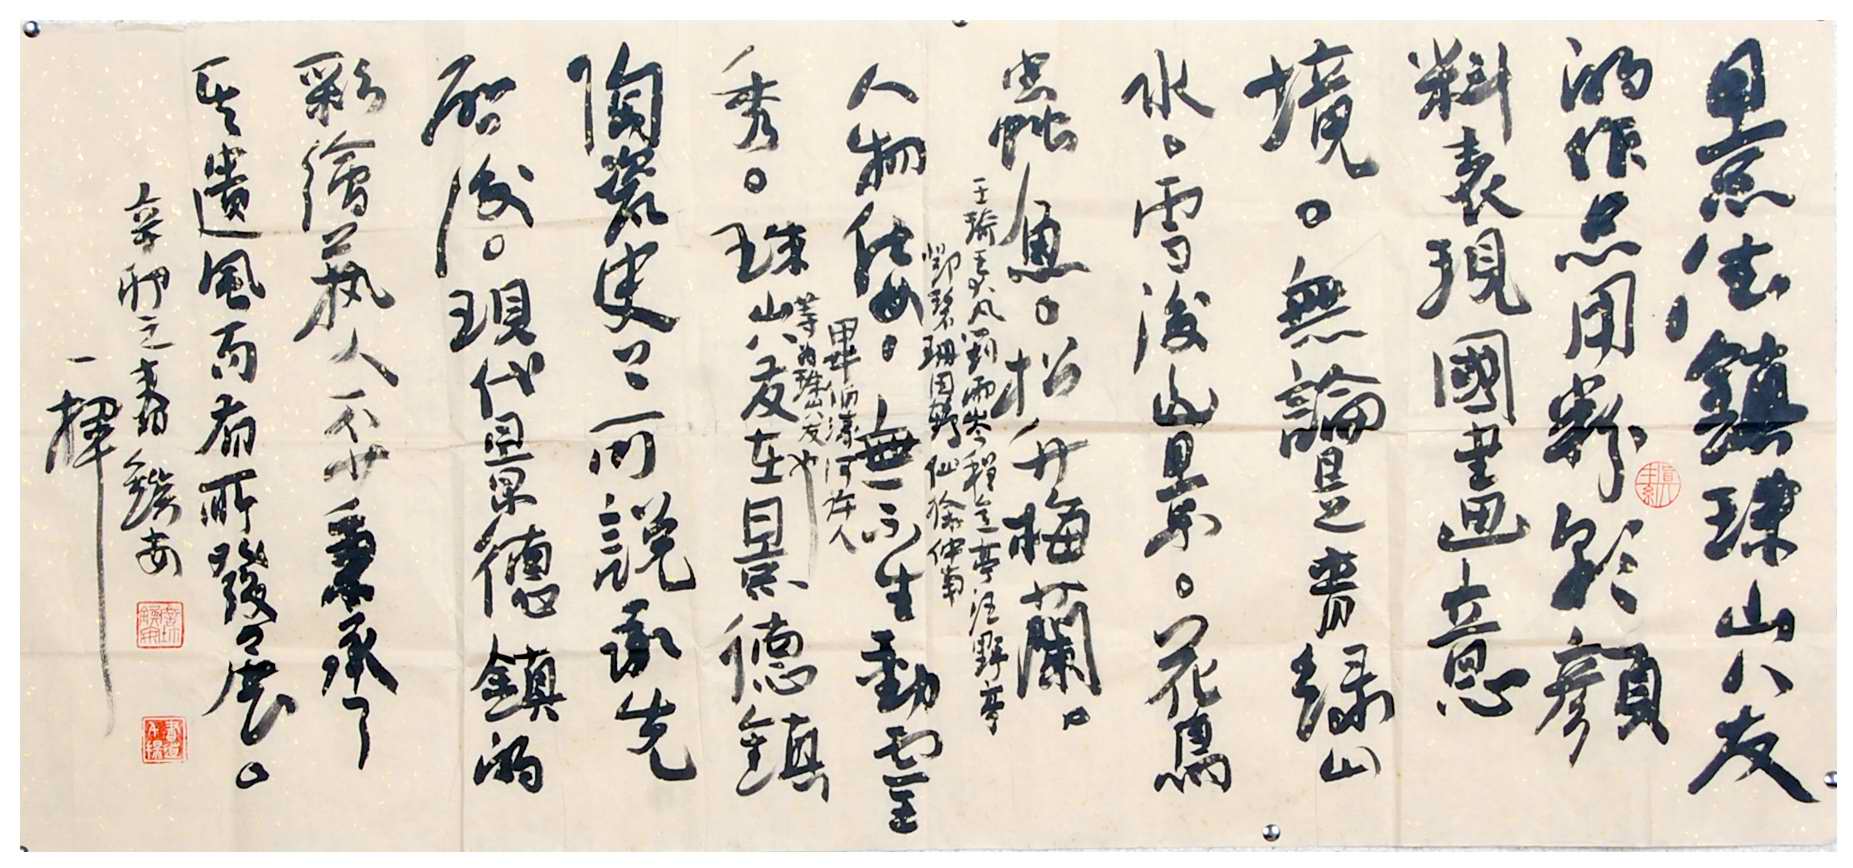 景德鎮珠山八友
的作品用粉彩顏
料表現國畫意
境。無論是青綠山
水。雪後山景。花鳥
虫蛇魚。松竹梅蘭。
人物仕女。無不生動靈
秀。珠山八友在景德鎮
陶瓷史上可說承先
啟後。現代景德鎮的
彩繪藝人不少秉承了
其遺風而有所發展。
王琦王大凡劉雨岑程意亭汪野亭
鄧碧珊田鶴仙徐仲南
畢伯濤何許人
等為珠山八友也
辛卯之春
一揮